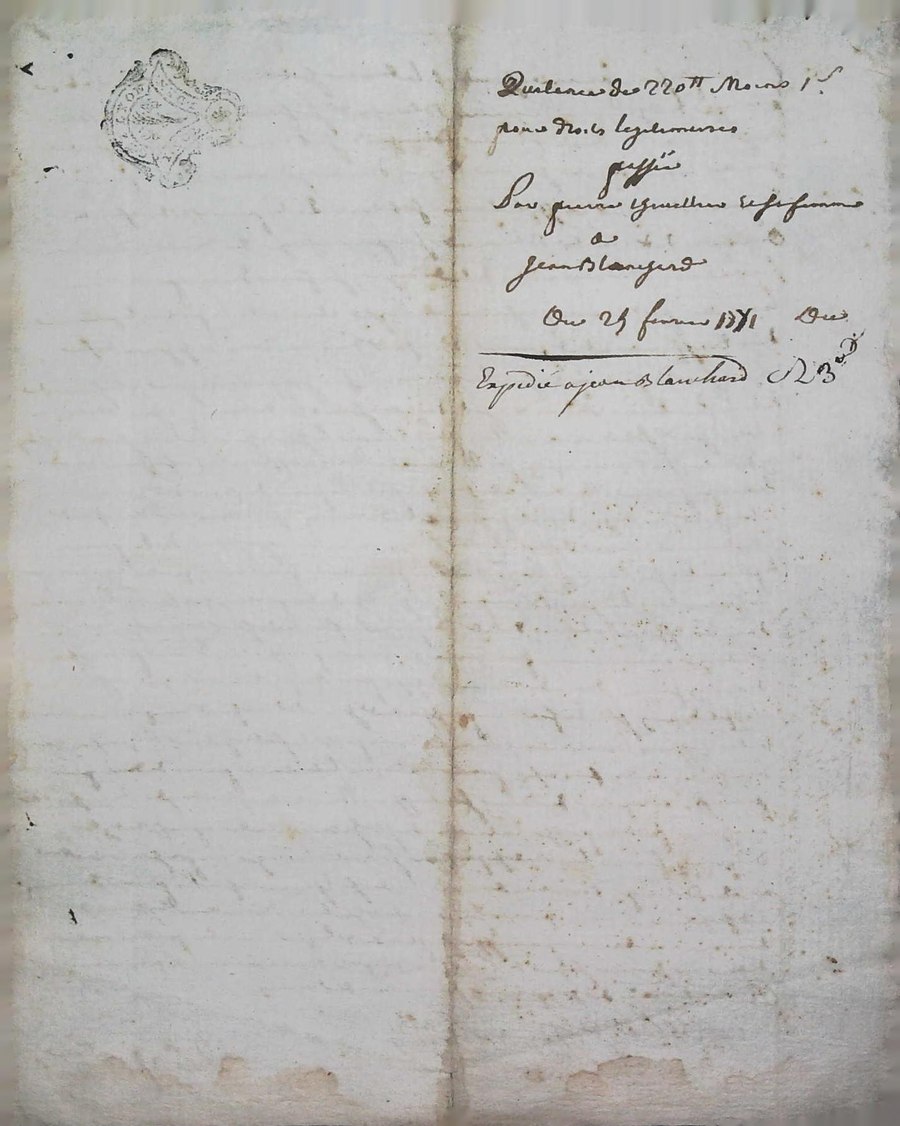 Quitence de 220tt Moins 1s
pour droits legitimeres
passée
Par pierre et sa femme
a
jean Blanchard
Du 25 fevrier 1771 Du
Expedié a jean Blanchard